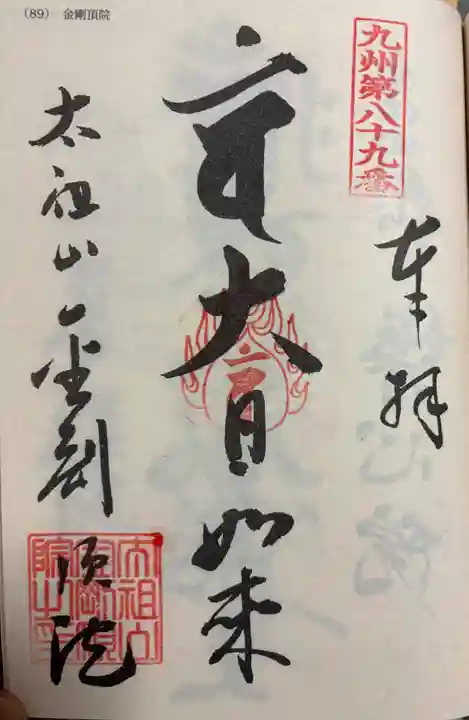 (89) 金剛頂院
九州第八十九番
奉拝
大日如来
太祖山金剛
頂院
太祖山
金剛頂
院之印